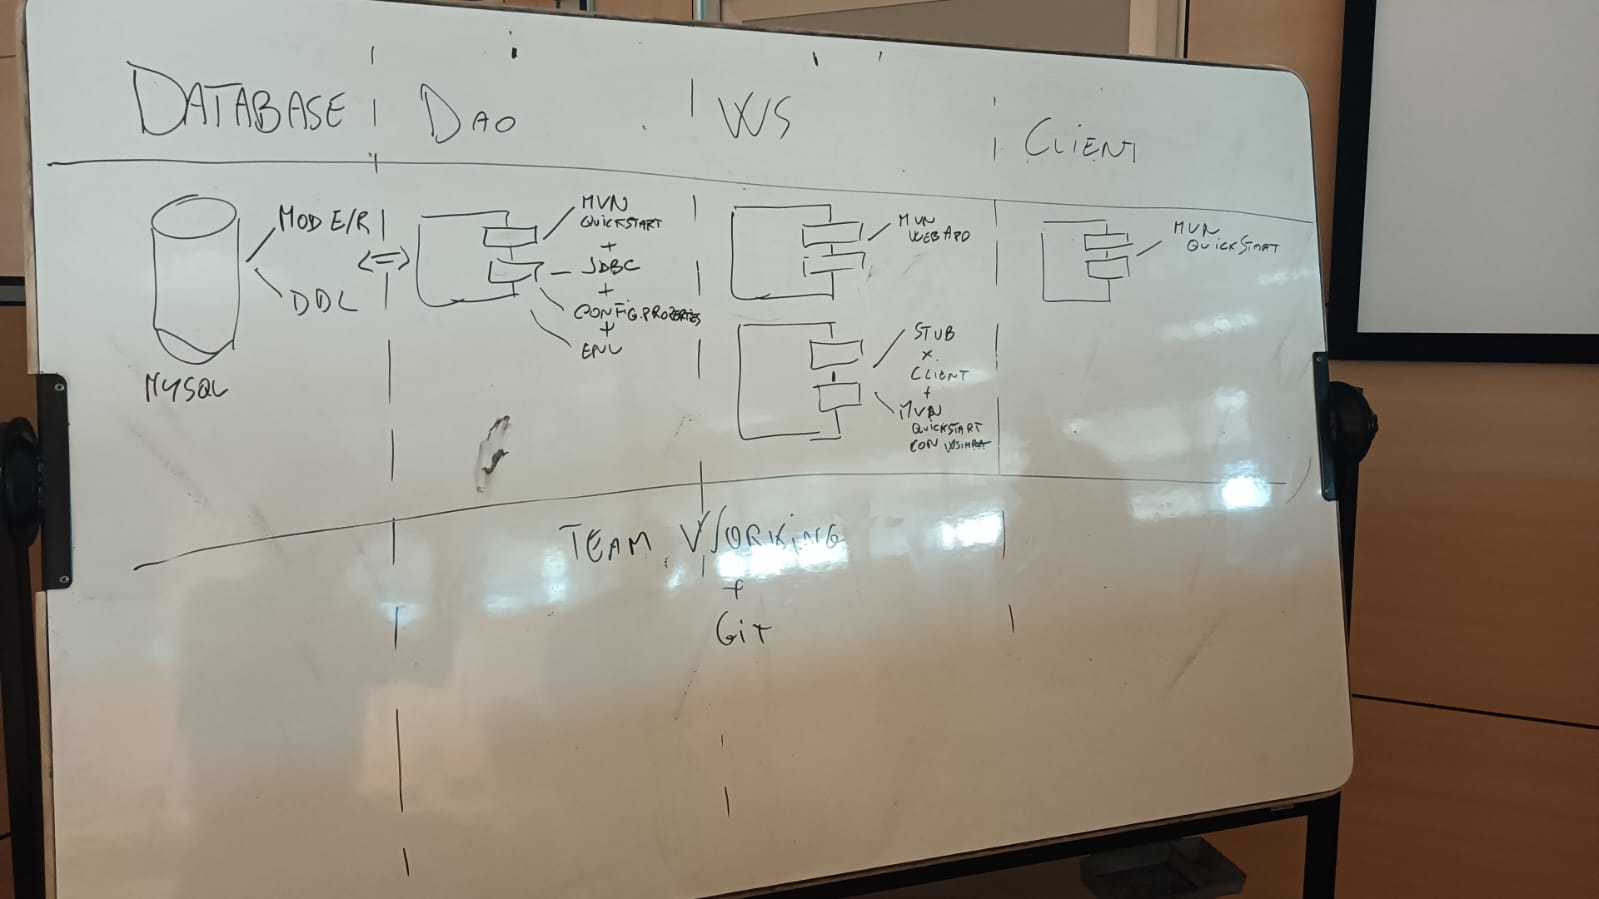 DATABASE
DAO
WS
CLIENT
MOD E/R
DDL
MYSQL
MVN
QUICKSTART
+
JDBC
+
CONFIG.PROPERTIES
+
ENV
MVN
WEBAPP
STUB
x
CLIENT
+
MVN
QUICKSTART
CON
MVN
QUICKSTART
TEAM WORKING
+
GIT